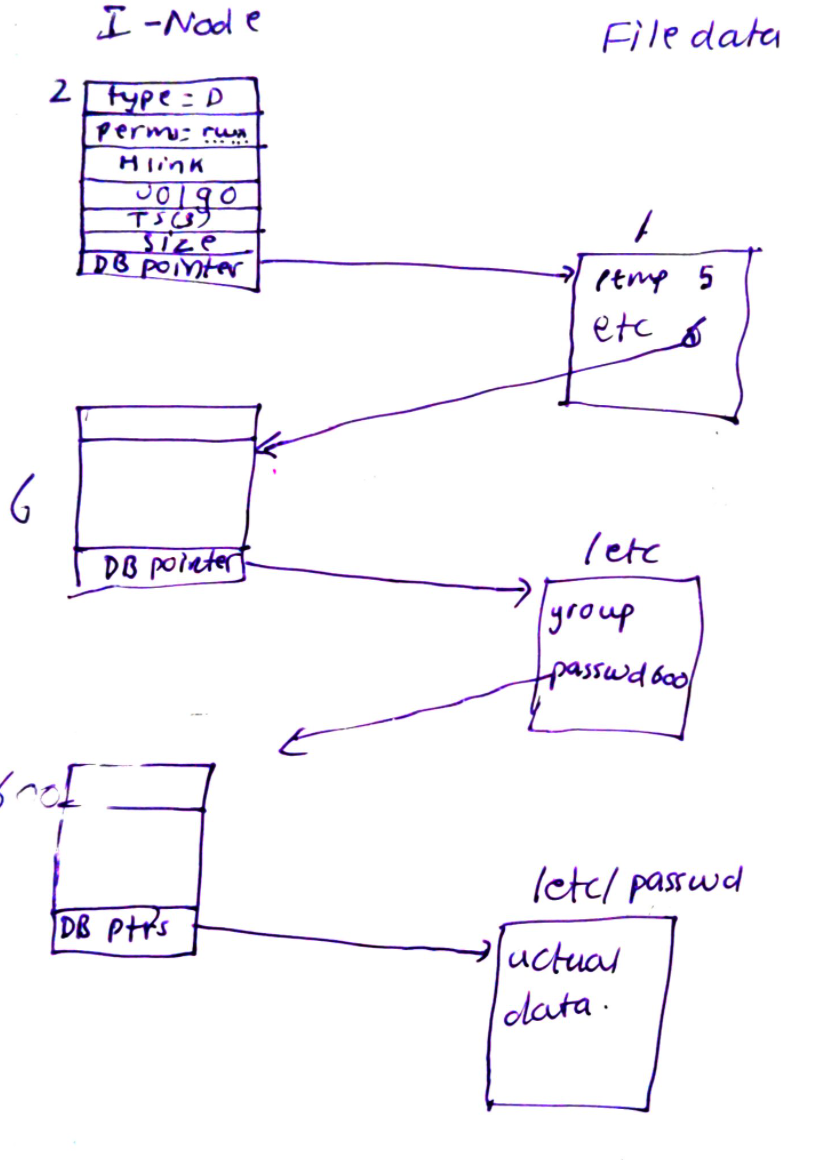 I-Node
File data
2
type = D
perm = rwx
H link
UO | gO
TS(3)
size
DB pointer
/
/tmp 5
etc 6
6
DB pointer
/etc
group
passwd 600
DB ptrs
/etc/passwd
actual
data.